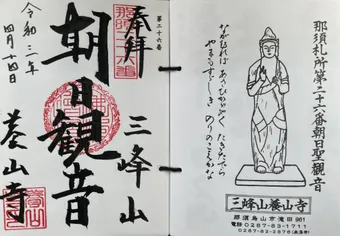 那須札所第二十六番朝日聖観音
ながむれば あさひかゞやく たきだでら
やまもすゞしき のりのこえかな
三峰山養山寺
那須烏山市滝田961
電話 0287-83-1711
0287-82-2876
第二十六番
奉拝
三峰山
朝日観音
養山寺
令和三年
四月十四日